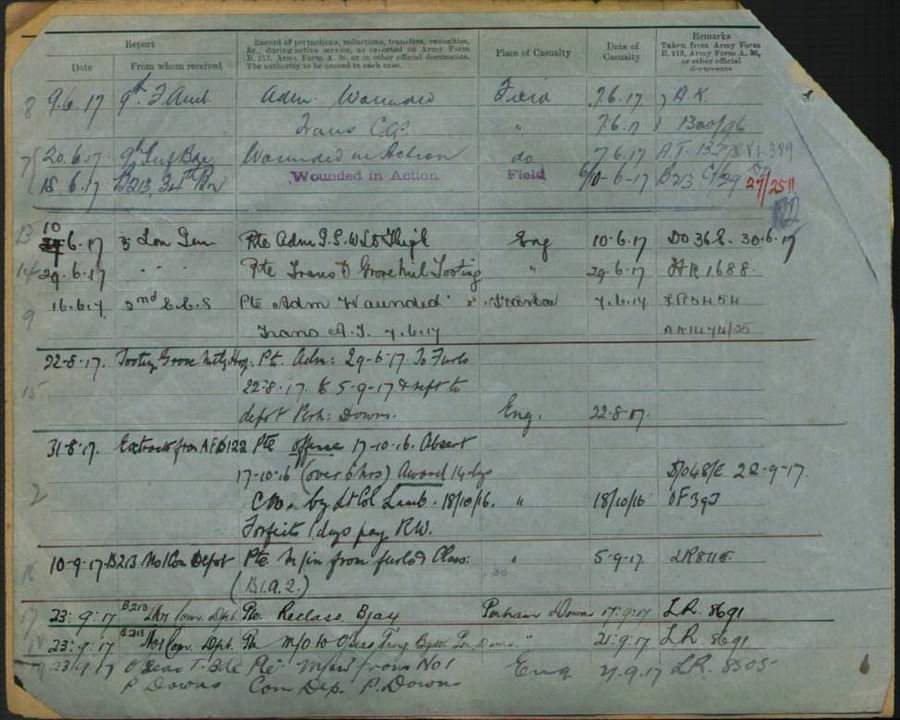 Report
Record of promotions, reductions, transfers, casualties,
&c., during active service, as reported on Army Form
B. 213, Army Form A. 36, or in other official documents.
The authority to be quoted in each case.
Place of Casualty
Date of
Casualty
Remarks
Taken from Army Form
B. 213, Army Form A. 36,
or other official
documents
Date From whom received
8 9.6.17 9th F. Amb Adm. Wounded Field 7.6.17
Trans CCS " 7.6.17
7 20.6.17 Wounded in Action do 7.6.17
18.6.17 B213 34th Bn Wounded in Action Field 10-6-17 B213 27/2511
13 10.6.17 3 Lon Gen Pte Adm G.S.W. Lt Thigh Eng 10.6.17 DO 368. 30.6.17
14 29.6.17 " " Pte Transf Grove Mil Tooting " 29.6.17 1688
9 16.6.17 2nd C.C.S Pte Adm "Wounded"
Trans A.T. 7.6.17
15 22-8-17. Tooting Grove Mil Hosp. Pt. Adm: 29-6-17 To Furlo
22-8-17. to 5-9-17 & rept to
depot Perh: Downs. Eng. 22.8.17.
2 31.8.17. Extracts from AFB122 Pte offence 17-10-16. Absent
17-10-16 (over 6 hrs) Award 14 dys 28-9-17.
by Lt Col Lamb. 18/10/16. " 18/10/16
Forfeits 1 days pay R.W.
16 10-9-17. B213 No1 Con Depot Pte M/in from furlo & Class. " 5-9-17.
(B.1.a.2.)
17 23.9.17 B213 No1 Com. Dpt. Pte. Reclass. B1a4 Perham Down 17.9.17 L.R. 8691
23.9.17 B213 No1 Com. Dpt. Pte M/O to O'seas Trng Bgde Per Downs " 21.9.17 L.R. 8691
23.9.17 O'seas T. Bde Pte M/in from No 1 Eng 21.9.17 L.R. 8505
P Downs Com Dep. P. Downs